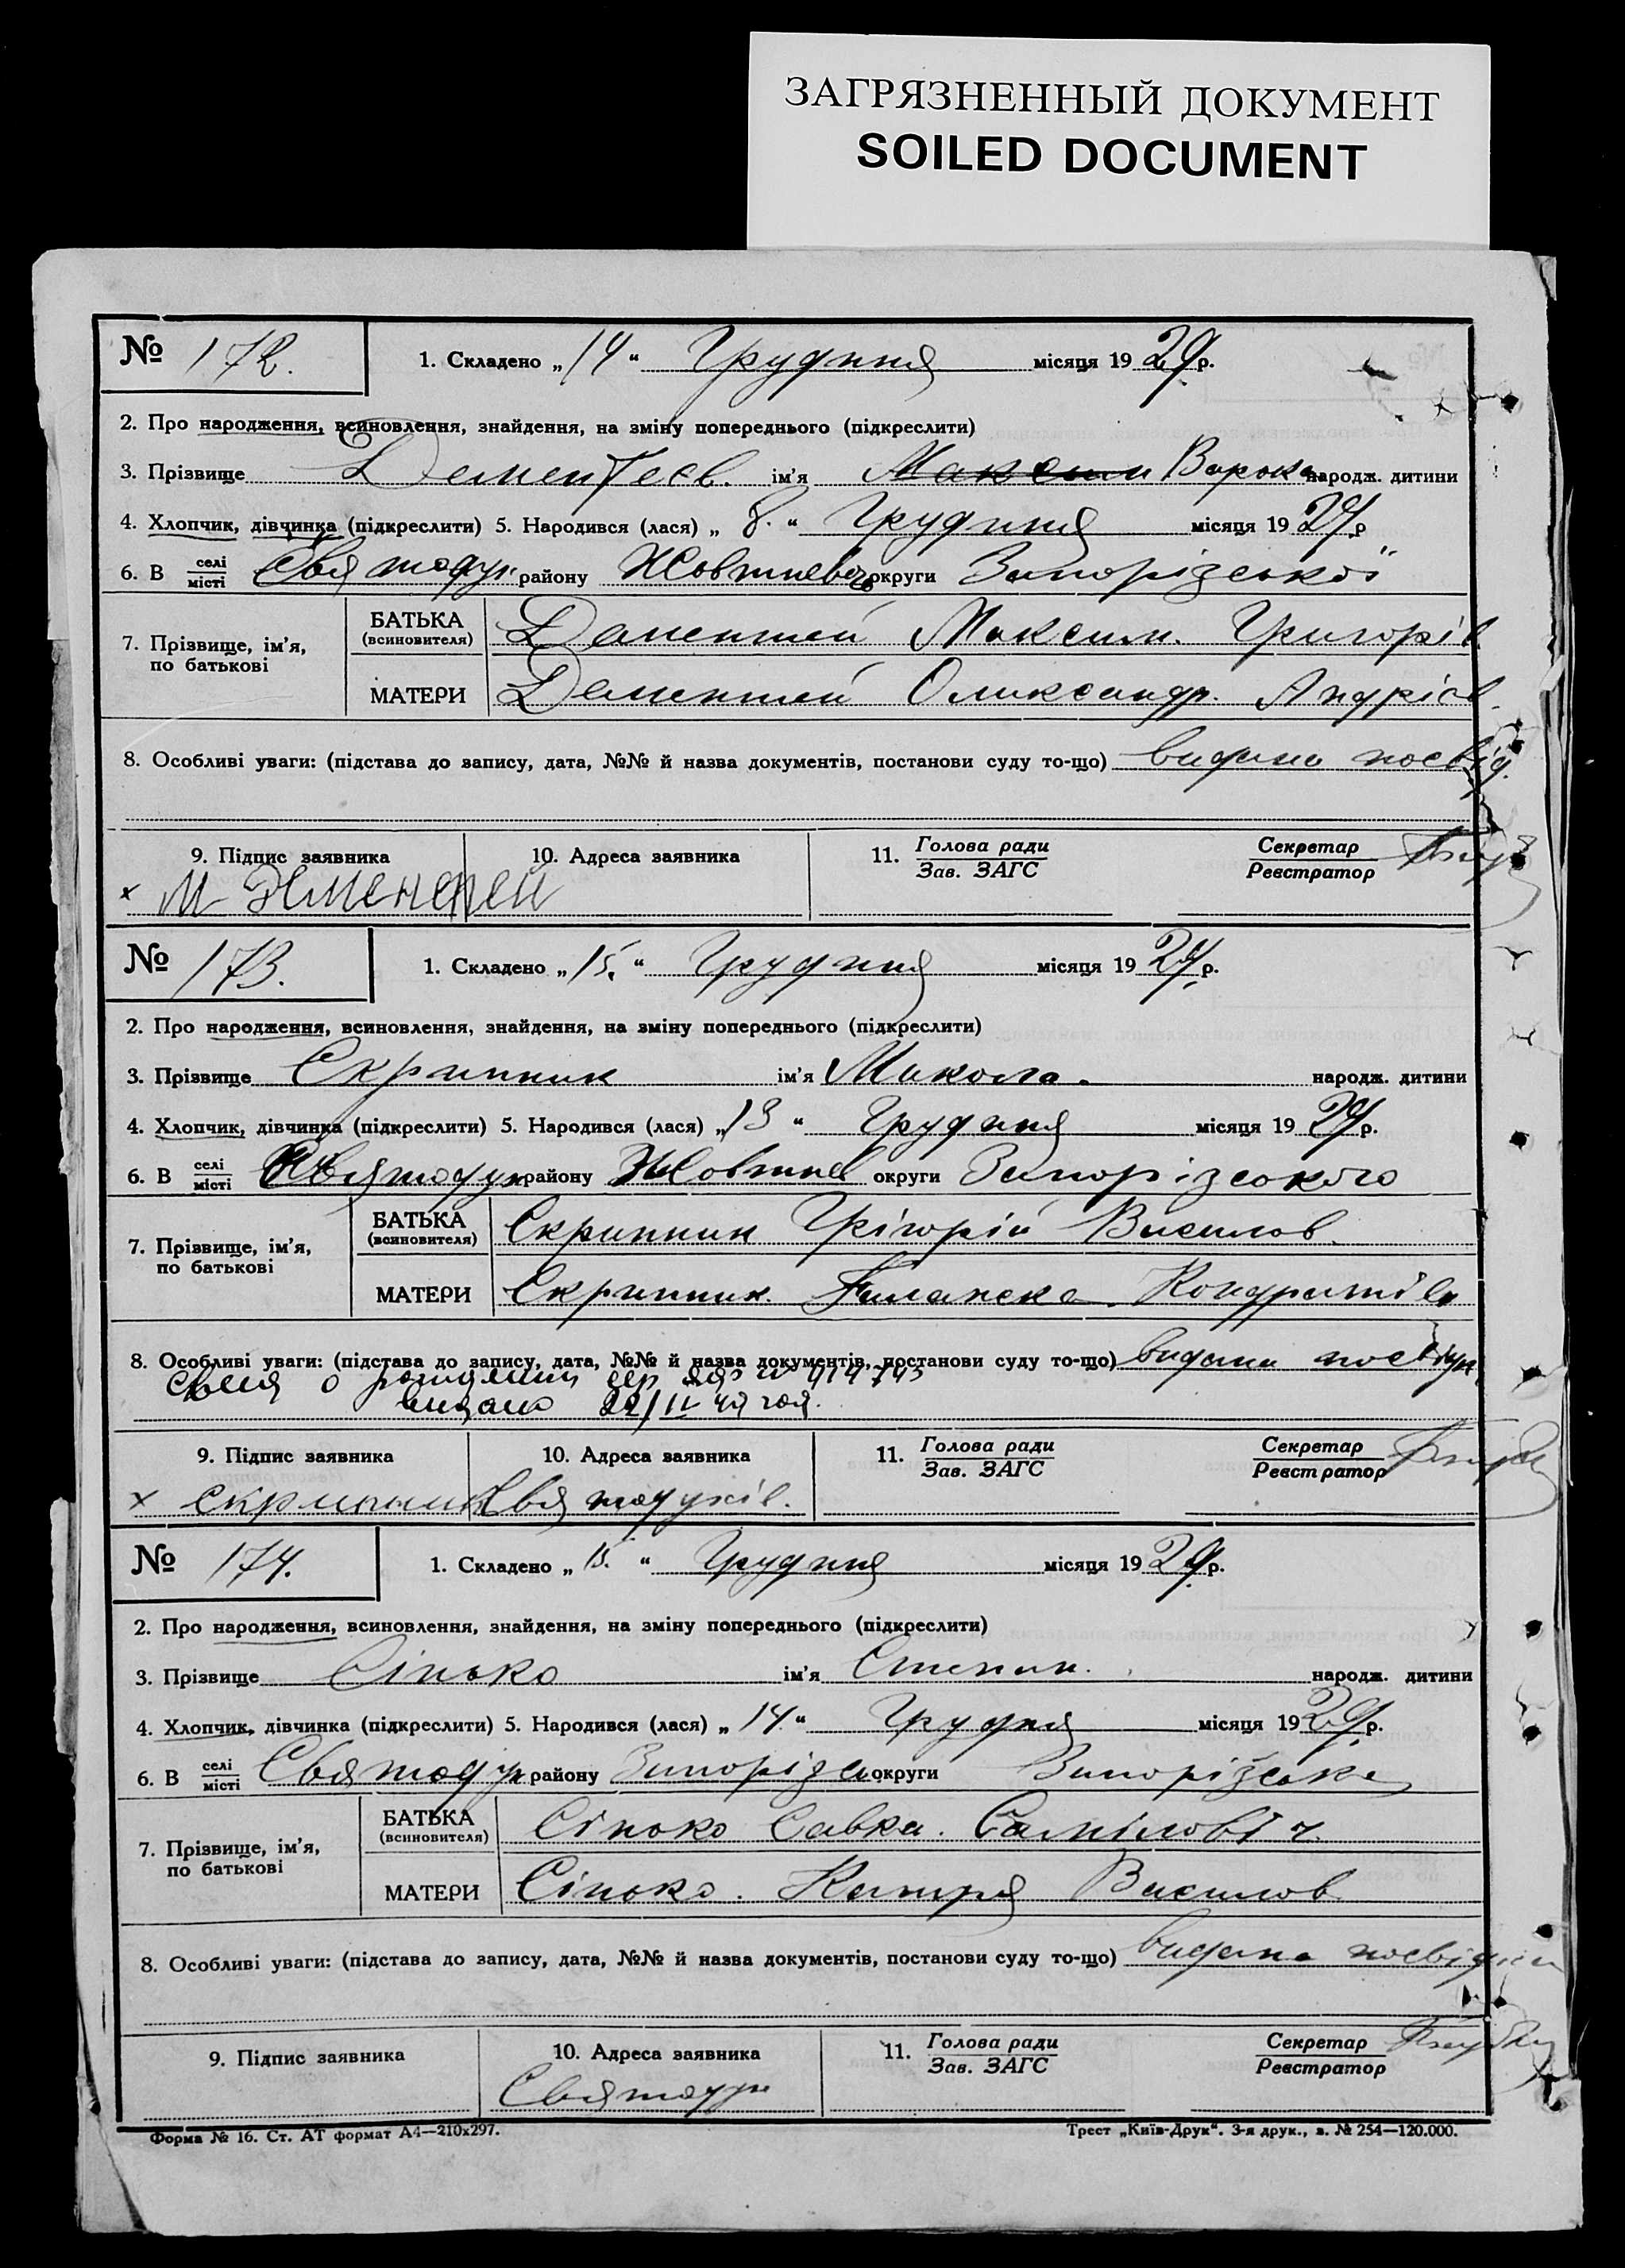 ЗАГРЯЗНЕННЫЙ ДОКУМЕНТ
SOILED DOCUMENT
№ 172. 1. Складено „14“ Грудння місяця 1929р.
2. Про народження, всиновлення, знайдення, на зміну попереднього (підкреслити)
3. Прізвище Дементеєв. ім'я народж. дитини
4. Хлопчик, дівчинка (підкреслити) 5. Народився (лася) „8.“ Грудиня місяця 1929р
6. В селі місті Святодух. району Жовтневого округи Запорізської
7. Прізвище, ім'я, по батькові
БАТЬКА (всиновителя) Даментий Максим. Григорів.
МАТЕРИ Даментий Олександр. Андрієв.
8. Особливі уваги: (підстава до запису, дата, №№ й назва документів, постанови суду то-що) видано посвід.
9. Підпис заявника 10. Адреса заявника 11. Голова ради Зав. ЗАГС Секретар Реєстратор
х М
№ 173. 1. Складено „15.“ Грудння місяця 1929р.
2. Про народження, всиновлення, знайдення, на зміну попереднього (підкреслити)
3. Прізвище Скрипник ім'я Микола. народж. дитини
4. Хлопчик, дівчинка (підкреслити) 5. Народився (лася) „13“ Грудння місяця 1929р.
6. В селі місті Святодух району Жовтнев округи Запорізського
7. Прізвище, ім'я, по батькові
БАТЬКА (всиновителя) Скрипник Грігорій Василов.
МАТЕРИ Скрипник. Кондратівн
8. Особливі уваги: (підстава до запису, дата, №№ й назва документів, постанови суду то-що) видано посвідч.
о
видано 22/II
9. Підпис заявника 10. Адреса заявника 11. Голова ради Зав. ЗАГС Секретар Реєстратор
х Скрипник Святодухів.
№ 174. 1. Складено „15.“ Грудння місяця 1929р.
2. Про народження, всиновлення, знайдення, на зміну попереднього (підкреслити)
3. Прізвище Сінько ім'я Степан. народж. дитини
4. Хлопчик, дівчинка (підкреслити) 5. Народився (лася) „14.“ Грудня місяця 1929р.
6. В селі місті Святодух району Запорізс округи Запорізське
7. Прізвище, ім'я, по батькові
БАТЬКА (всиновителя) Сінько Савка. Саміловіч.
МАТЕРИ Сінько. Катиря Василов
8. Особливі уваги: (підстава до запису, дата, №№ й назва документів, постанови суду то-що) видано посвідчен
9. Підпис заявника 10. Адреса заявника 11. Голова ради Зав. ЗАГС Секретар Реєстратор
Святодух
Форма № 16. Ст. АТ формат А4—210х297. Трест „Київ-Друк“. 3-я друк., з. № 254—120.000.